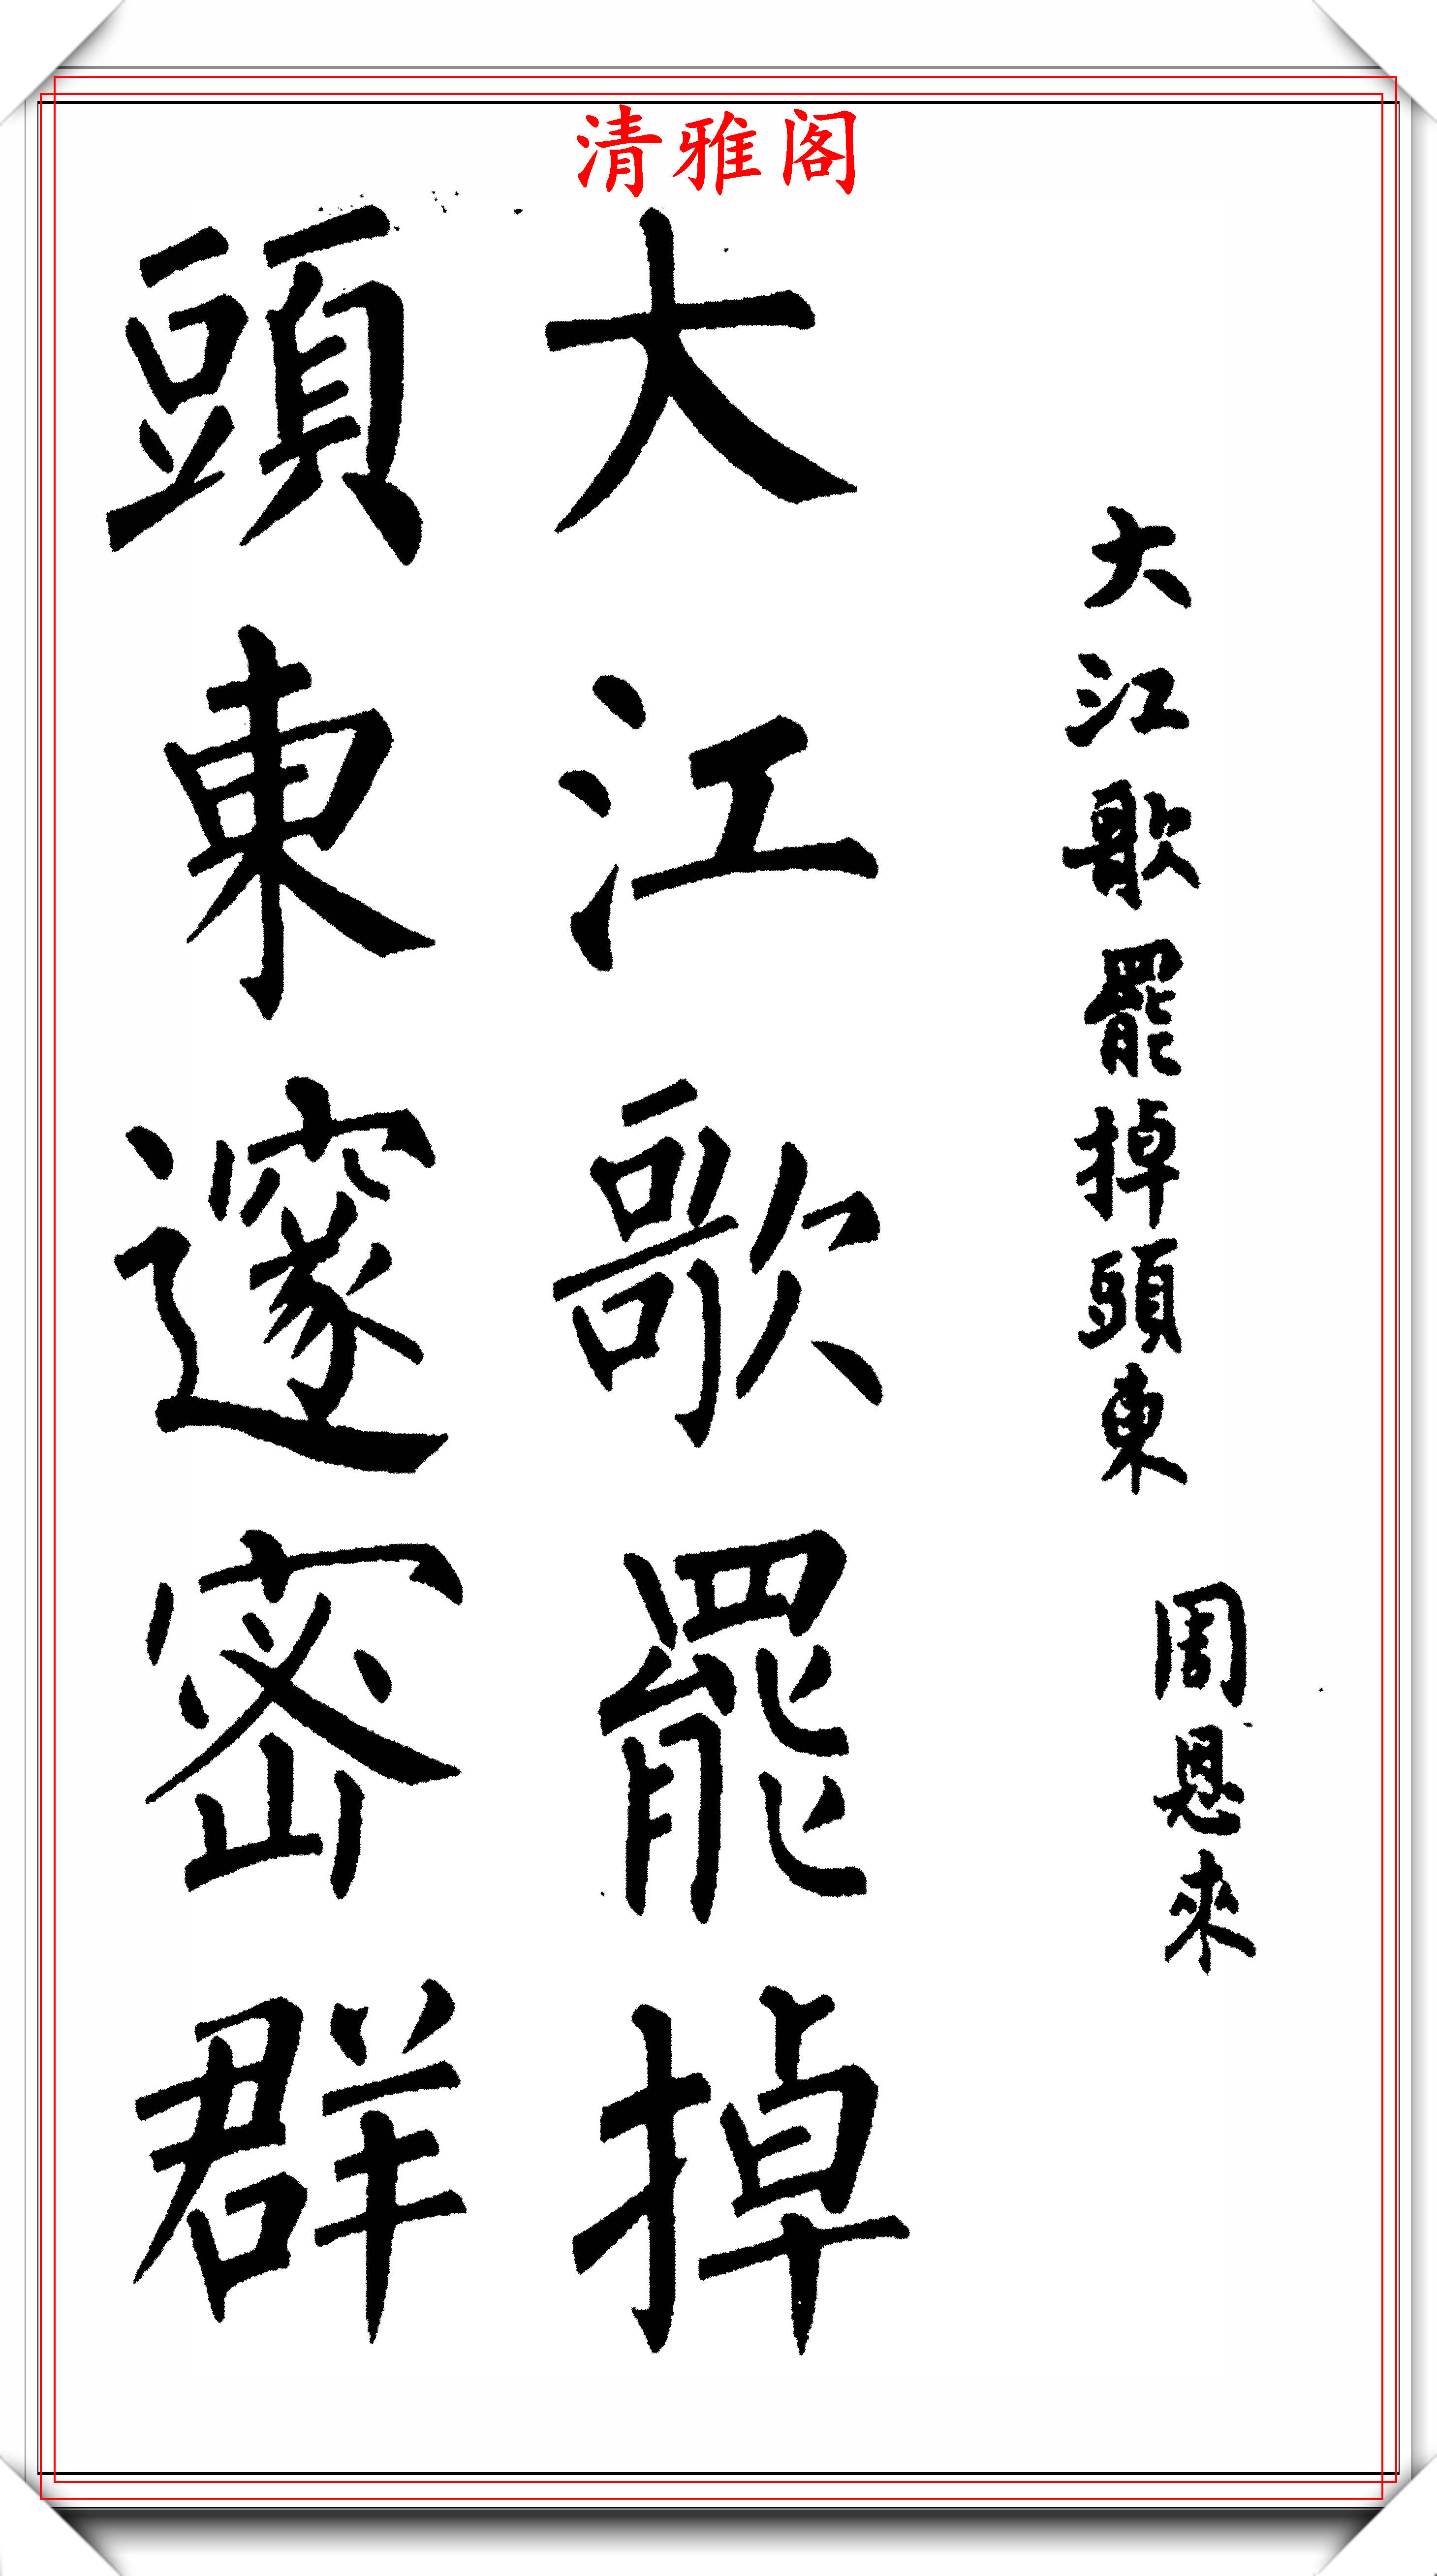 清雅阁
大江歌罷掉頭東
周恩來
大江歌罷掉
頭東邃密群